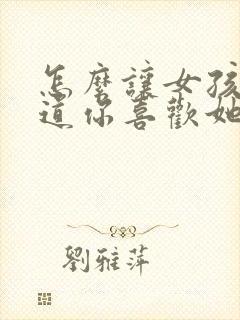 怎麼讓女孩
道你喜歡她
劉雅萍